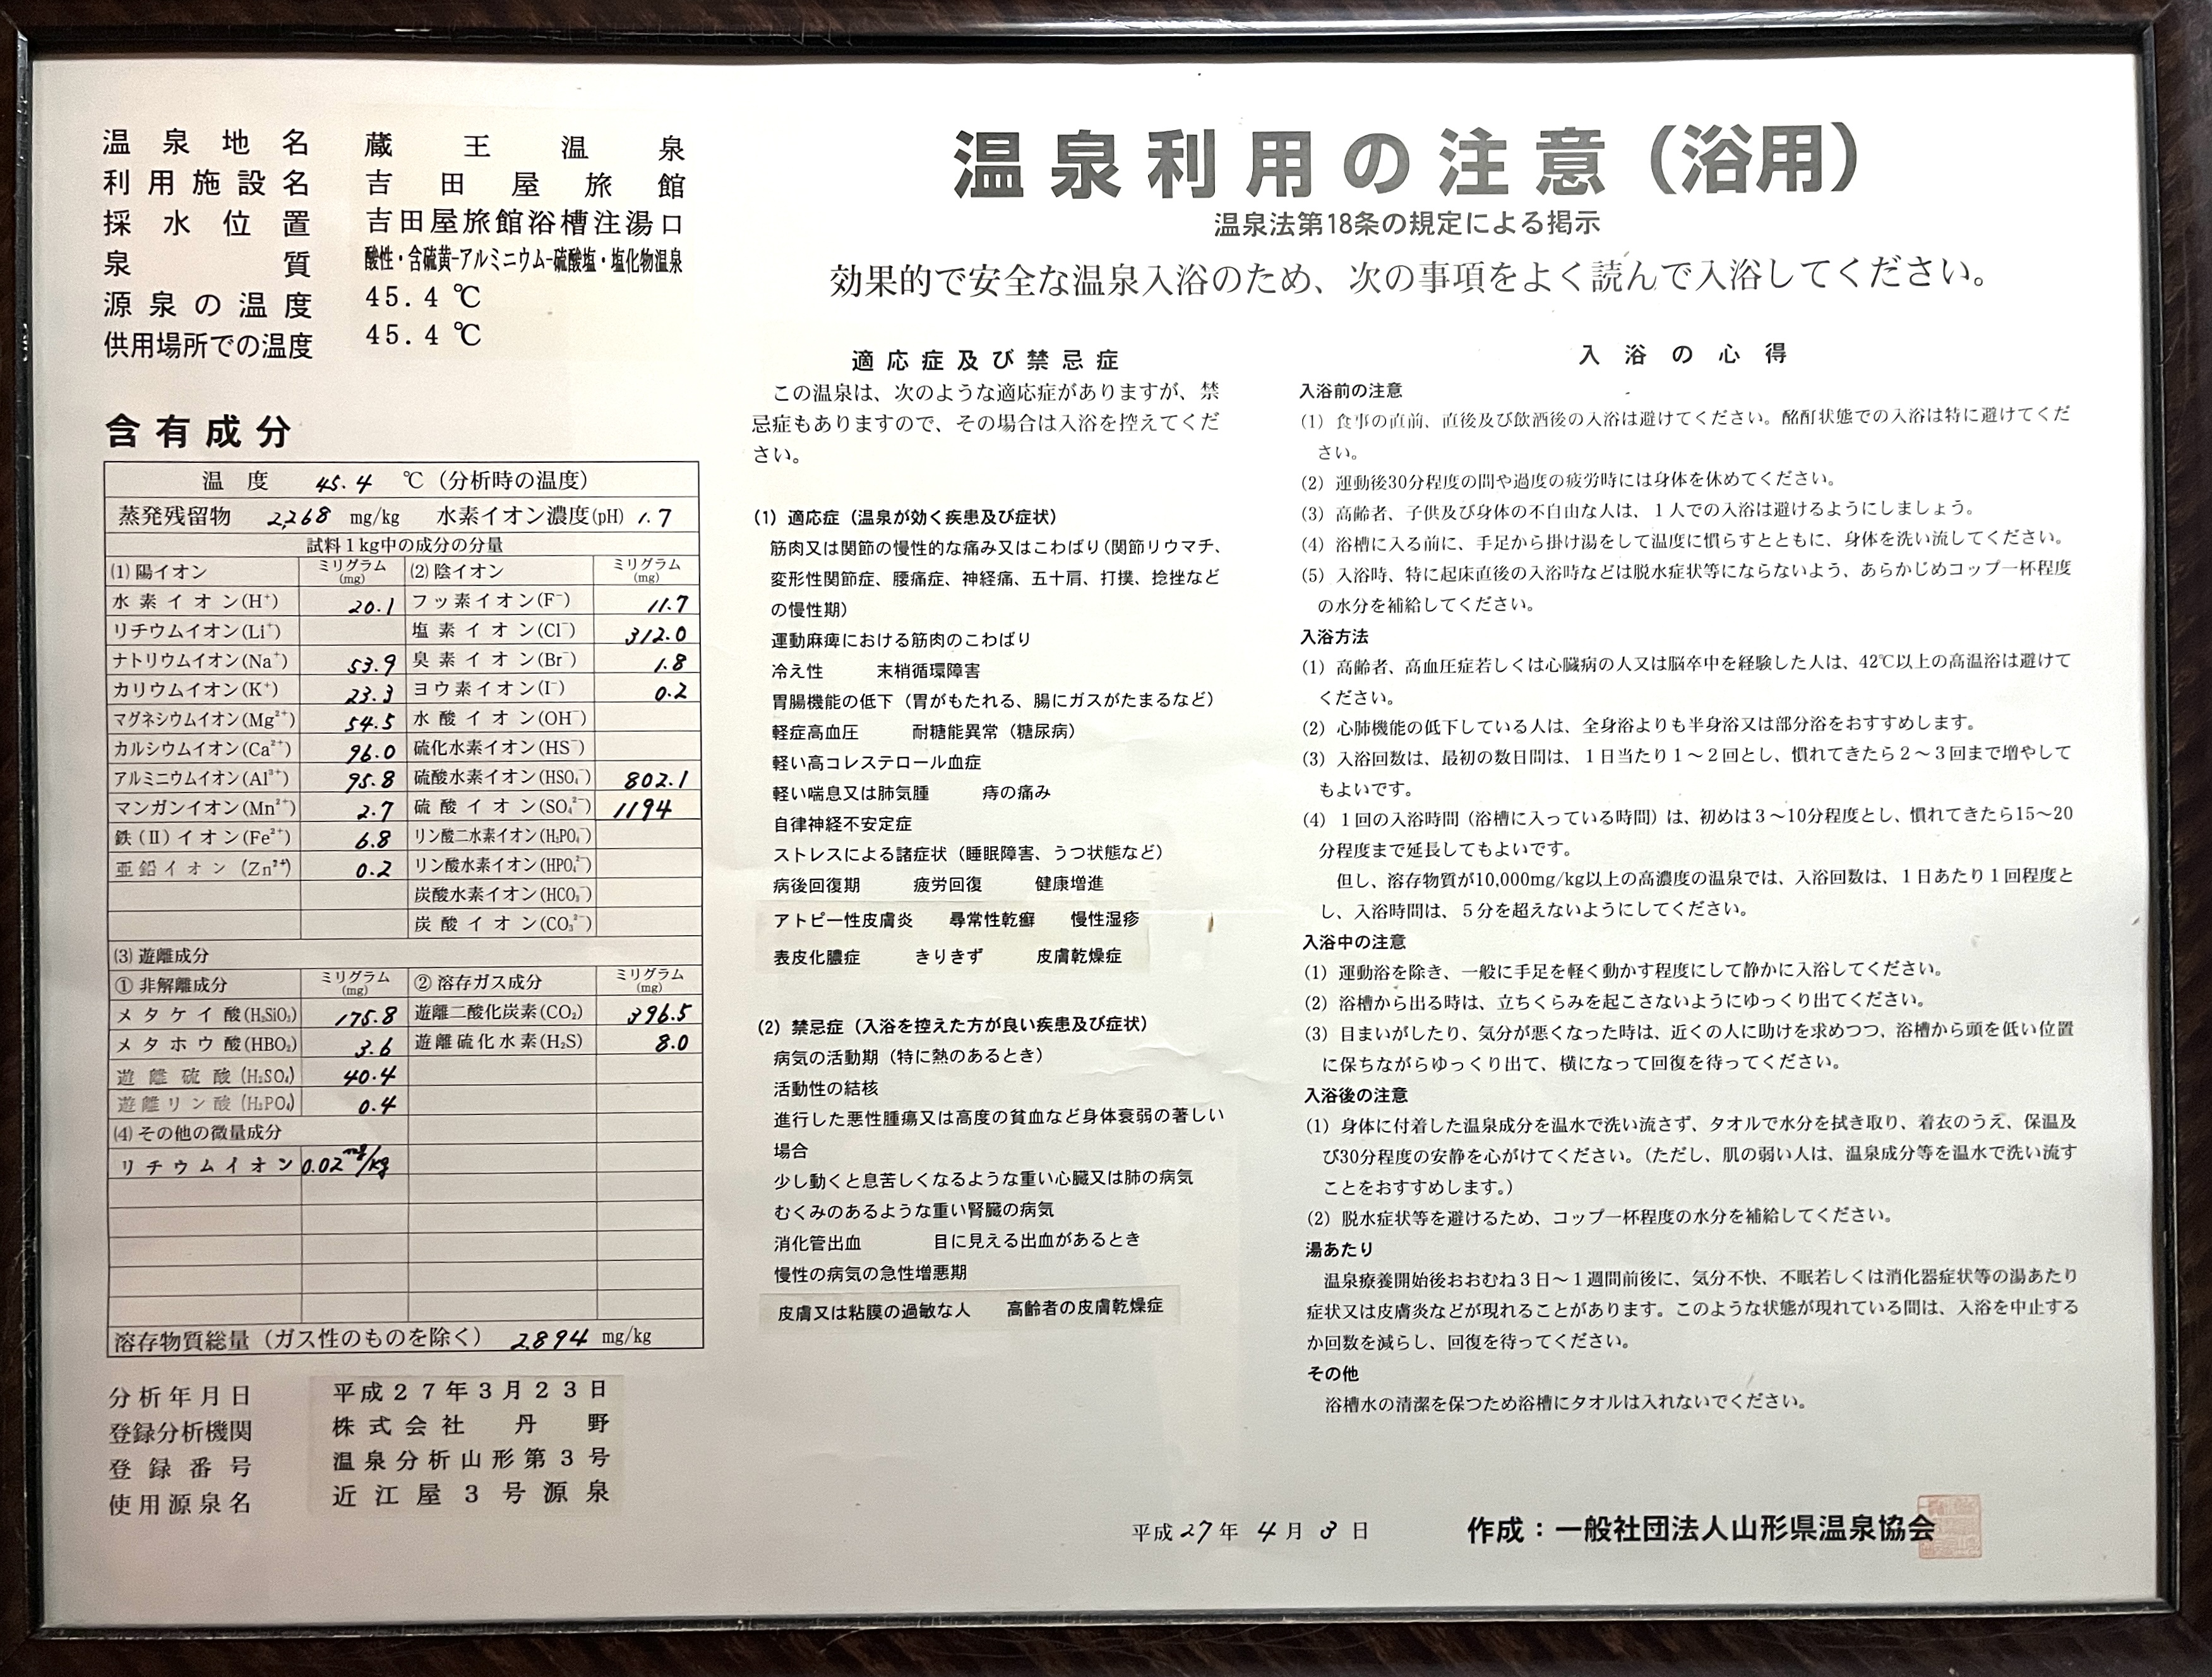 温泉地名 蔵王温泉
利用施設名 吉田屋旅館
採水位置 吉田屋旅館浴槽注湯口
泉質 酸性・含硫黄-アルミニウム-硫酸塩・塩化物温泉
源泉の温度 45.4℃
供用場所での温度 45.4℃
含有成分
温度 45.4 ℃（分析時の温度）
蒸発残留物 2,268 mg/kg 水素イオン濃度(pH) 1.7
試料1kg中の成分の分量
(1)陽イオン ミリグラム(mg) (2)陰イオン ミリグラム(mg)
水素イオン(H⁺) 20.1 フッ素イオン(F⁻) 11.7
リチウムイオン(Li⁺) 塩素イオン(Cl⁻) 312.0
ナトリウムイオン(Na⁺) 53.9 臭素イオン(Br⁻) 1.8
カリウムイオン(K⁺) 23.3 ヨウ素イオン(I⁻) 0.2
マグネシウムイオン(Mg²⁺) 54.5 水酸イオン(OH⁻)
カルシウムイオン(Ca²⁺) 96.0 硫化水素イオン(HS⁻)
アルミニウムイオン(Al³⁺) 95.8 硫酸水素イオン(HSO₄⁻) 802.1
マンガンイオン(Mn²⁺) 2.7 硫酸イオン(SO₄²⁻) 1194
鉄(II)イオン(Fe²⁺) 6.8 リン酸二水素イオン(H₂PO₄⁻)
亜鉛イオン(Zn²⁺) 0.2 リン酸水素イオン(HPO₄²⁻)
炭酸水素イオン(HCO₃⁻)
炭酸イオン(CO₃²⁻)
(3)遊離成分
①非解離成分 ミリグラム(mg) ②溶存ガス成分 ミリグラム(mg)
メタケイ酸(H₂SiO₃) 175.8 遊離二酸化炭素(CO₂) 396.5
メタホウ酸(HBO₂) 3.6 遊離硫化水素(H₂S) 8.0
遊離硫酸(H₂SO₄) 40.4
遊離リン酸(H₃PO₄) 0.4
(4)その他の微量成分
リチウムイオン 0.02mg/kg
溶存物質総量（ガス性のものを除く） 2,894 mg/kg
分析年月日 平成27年3月23日
登録分析機関 株式会社 丹野
登録番号 温泉分析山形第3号
使用源泉名 近江屋3号源泉
温泉利用の注意（浴用）
温泉法第18条の規定による掲示
効果的で安全な温泉入浴のため、次の事項をよく読んで入浴してください。
適応症及び禁忌症
この温泉は、次のような適応症がありますが、禁
忌症もありますので、その場合は入浴を控えてくだ
さい。
(1) 適応症（温泉が効く疾患及び症状）
筋肉又は関節の慢性的な痛み又はこわばり（関節リウマチ、
変形性関節症、腰痛症、神経痛、五十肩、打撲、捻挫など
の慢性期）
運動麻痺における筋肉のこわばり
冷え性 末梢循環障害
胃腸機能の低下（胃がもたれる、腸にガスがたまるなど）
軽症高血圧 耐糖能異常（糖尿病）
軽い高コレステロール血症
軽い喘息又は肺気腫 痔の痛み
自律神経不安定症
ストレスによる諸症状（睡眠障害、うつ状態など）
病後回復期 疲労回復 健康増進
アトピー性皮膚炎 尋常性乾癬 慢性湿疹
表皮化膿症 きりきず 皮膚乾燥症
(2) 禁忌症（入浴を控えた方が良い疾患及び症状）
病気の活動期（特に熱のあるとき）
活動性の結核
進行した悪性腫瘍又は高度の貧血など身体衰弱の著しい
場合
少し動くと息苦しくなるような重い心臓又は肺の病気
むくみのあるような重い腎臓の病気
消化管出血 目に見える出血があるとき
慢性の病気の急性増悪期
皮膚又は粘膜の過敏な人 高齢者の皮膚乾燥症
入浴の心得
入浴前の注意
(1) 食事の直前、直後及び飲酒後の入浴は避けてください。酩酊状態での入浴は特に避けてくだ
さい。
(2) 運動後30分程度の間や過度の疲労時には身体を休めてください。
(3) 高齢者、子供及び身体の不自由な人は、1人での入浴は避けるようにしましょう。
(4) 浴槽に入る前に、手足から掛け湯をして温度に慣らすとともに、身体を洗い流してください。
(5) 入浴時、特に起床直後の入浴時などは脱水症状等にならないよう、あらかじめコップ一杯程度
の水分を補給してください。
入浴方法
(1) 高齢者、高血圧症若しくは心臓病の人又は脳卒中を経験した人は、42℃以上の高温浴は避けて
ください。
(2) 心肺機能の低下している人は、全身浴よりも半身浴又は部分浴をおすすめします。
(3) 入浴回数は、最初の数日間は、1日当たり1～2回とし、慣れてきたら2～3回まで増やして
もよいです。
(4) 1回の入浴時間（浴槽に入っている時間）は、初めは3～10分程度とし、慣れてきたら15～20
分程度まで延長してもよいです。
但し、溶存物質が10,000mg/kg以上の高濃度の温泉では、入浴回数は、1日あたり1回程度と
し、入浴時間は、5分を超えないようにしてください。
入浴中の注意
(1) 運動浴を除き、一般に手足を軽く動かす程度にして静かに入浴してください。
(2) 浴槽から出る時は、立ちくらみを起こさないようにゆっくり出てください。
(3) 目まいがしたり、気分が悪くなった時は、近くの人に助けを求めつつ、浴槽から頭を低い位置
に保ちながらゆっくり出て、横になって回復を待ってください。
入浴後の注意
(1) 身体に付着した温泉成分を温水で洗い流さず、タオルで水分を拭き取り、着衣のうえ、保温及
び30分程度の安静を心がけてください。（ただし、肌の弱い人は、温泉成分等を温水で洗い流す
ことをおすすめします。）
(2) 脱水症状等を避けるため、コップ一杯程度の水分を補給してください。
湯あたり
温泉療養開始後おおむね3日～1週間前後に、気分不快、不眠若しくは消化器症状等の湯あたり
症状又は皮膚炎などが現れることがあります。このような状態が現れている間は、入浴を中止する
か回数を減らし、回復を待ってください。
その他
浴槽水の清潔を保つため浴槽にタオルは入れないでください。
平成27年4月3日 作成：一般社団法人山形県温泉協会